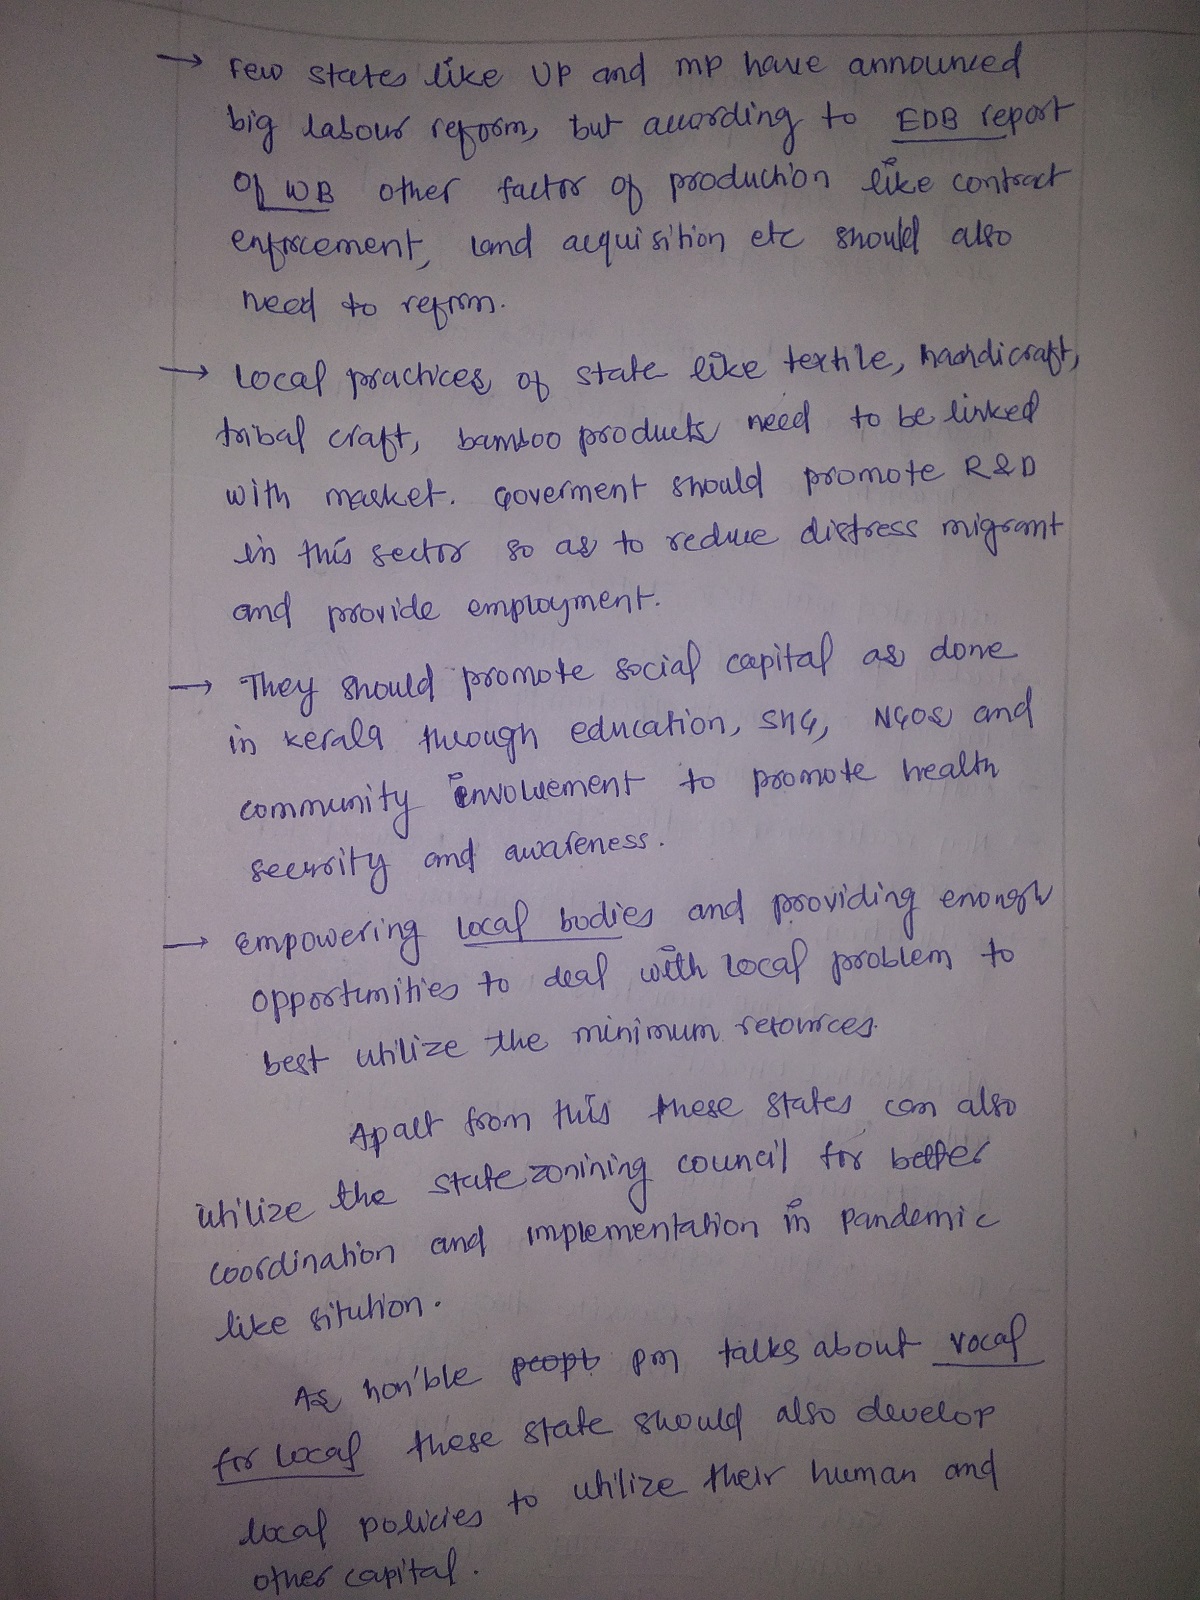 → Few states like UP and MP have announced
big labour reform, but according to EDB report
of WB other factor of production like contract
enforcement, land acquisition etc should also
need to reform.
→ Local practices of state like textile, handicraft,
tribal craft, bamboo products need to be linked
with market. Goverment should promote R&D
in this sector so as to reduce distress migrant
and provide employment.
→ They should promote social capital as done
in Kerala through education, SHG, NGOs and
community involvement to promote health
security and awareness.
→ Empowering local bodies and providing enough
opportunities to deal with local problem to
best utilize the minimum resources.
Apart from this these states can also
utilize the state zonining council for better
coordination and implementation in pandemic
like sitution.
As hon'ble PM talks about vocal
for local these state should also develop
local policies to utilize their human and
other capital.